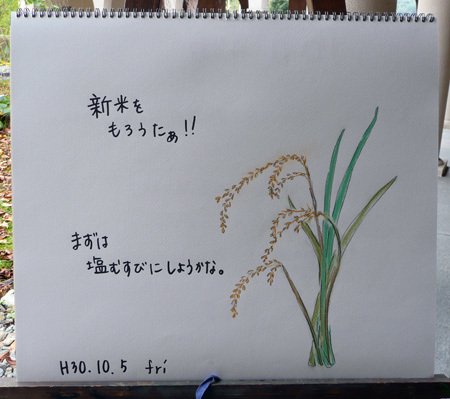 新米を
もろうたぁ!!
まずは
塩むすびにしようかな。
H30.10.5 fri